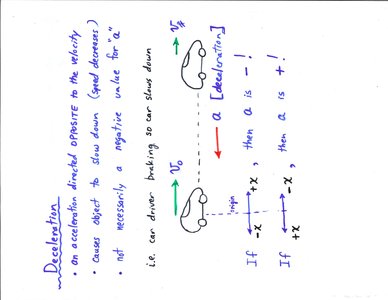 Deceleration
• an acceleration directed OPPOSITE to the velocity
• causes object to slow down (speed decreases)
• not necessarily a negative value for "a"
i.e. car driver braking so car slows down
v₀
v
a [deceleration]
origin
If -x +x , then a is - !
If +x -x , then a is + !